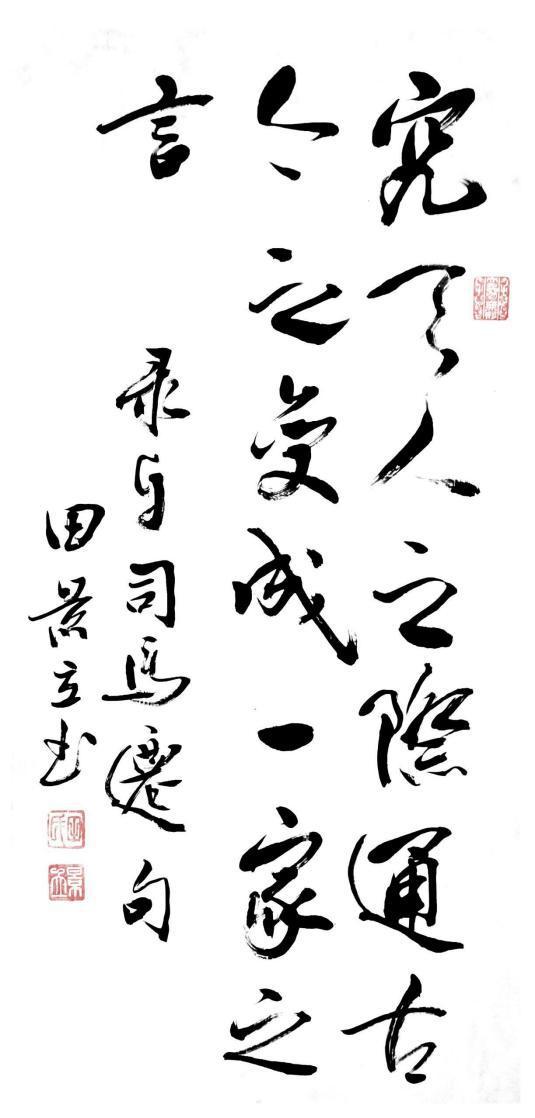 究天人之際通古
今之變成一家之
言
录自司馬遷句
田景立书